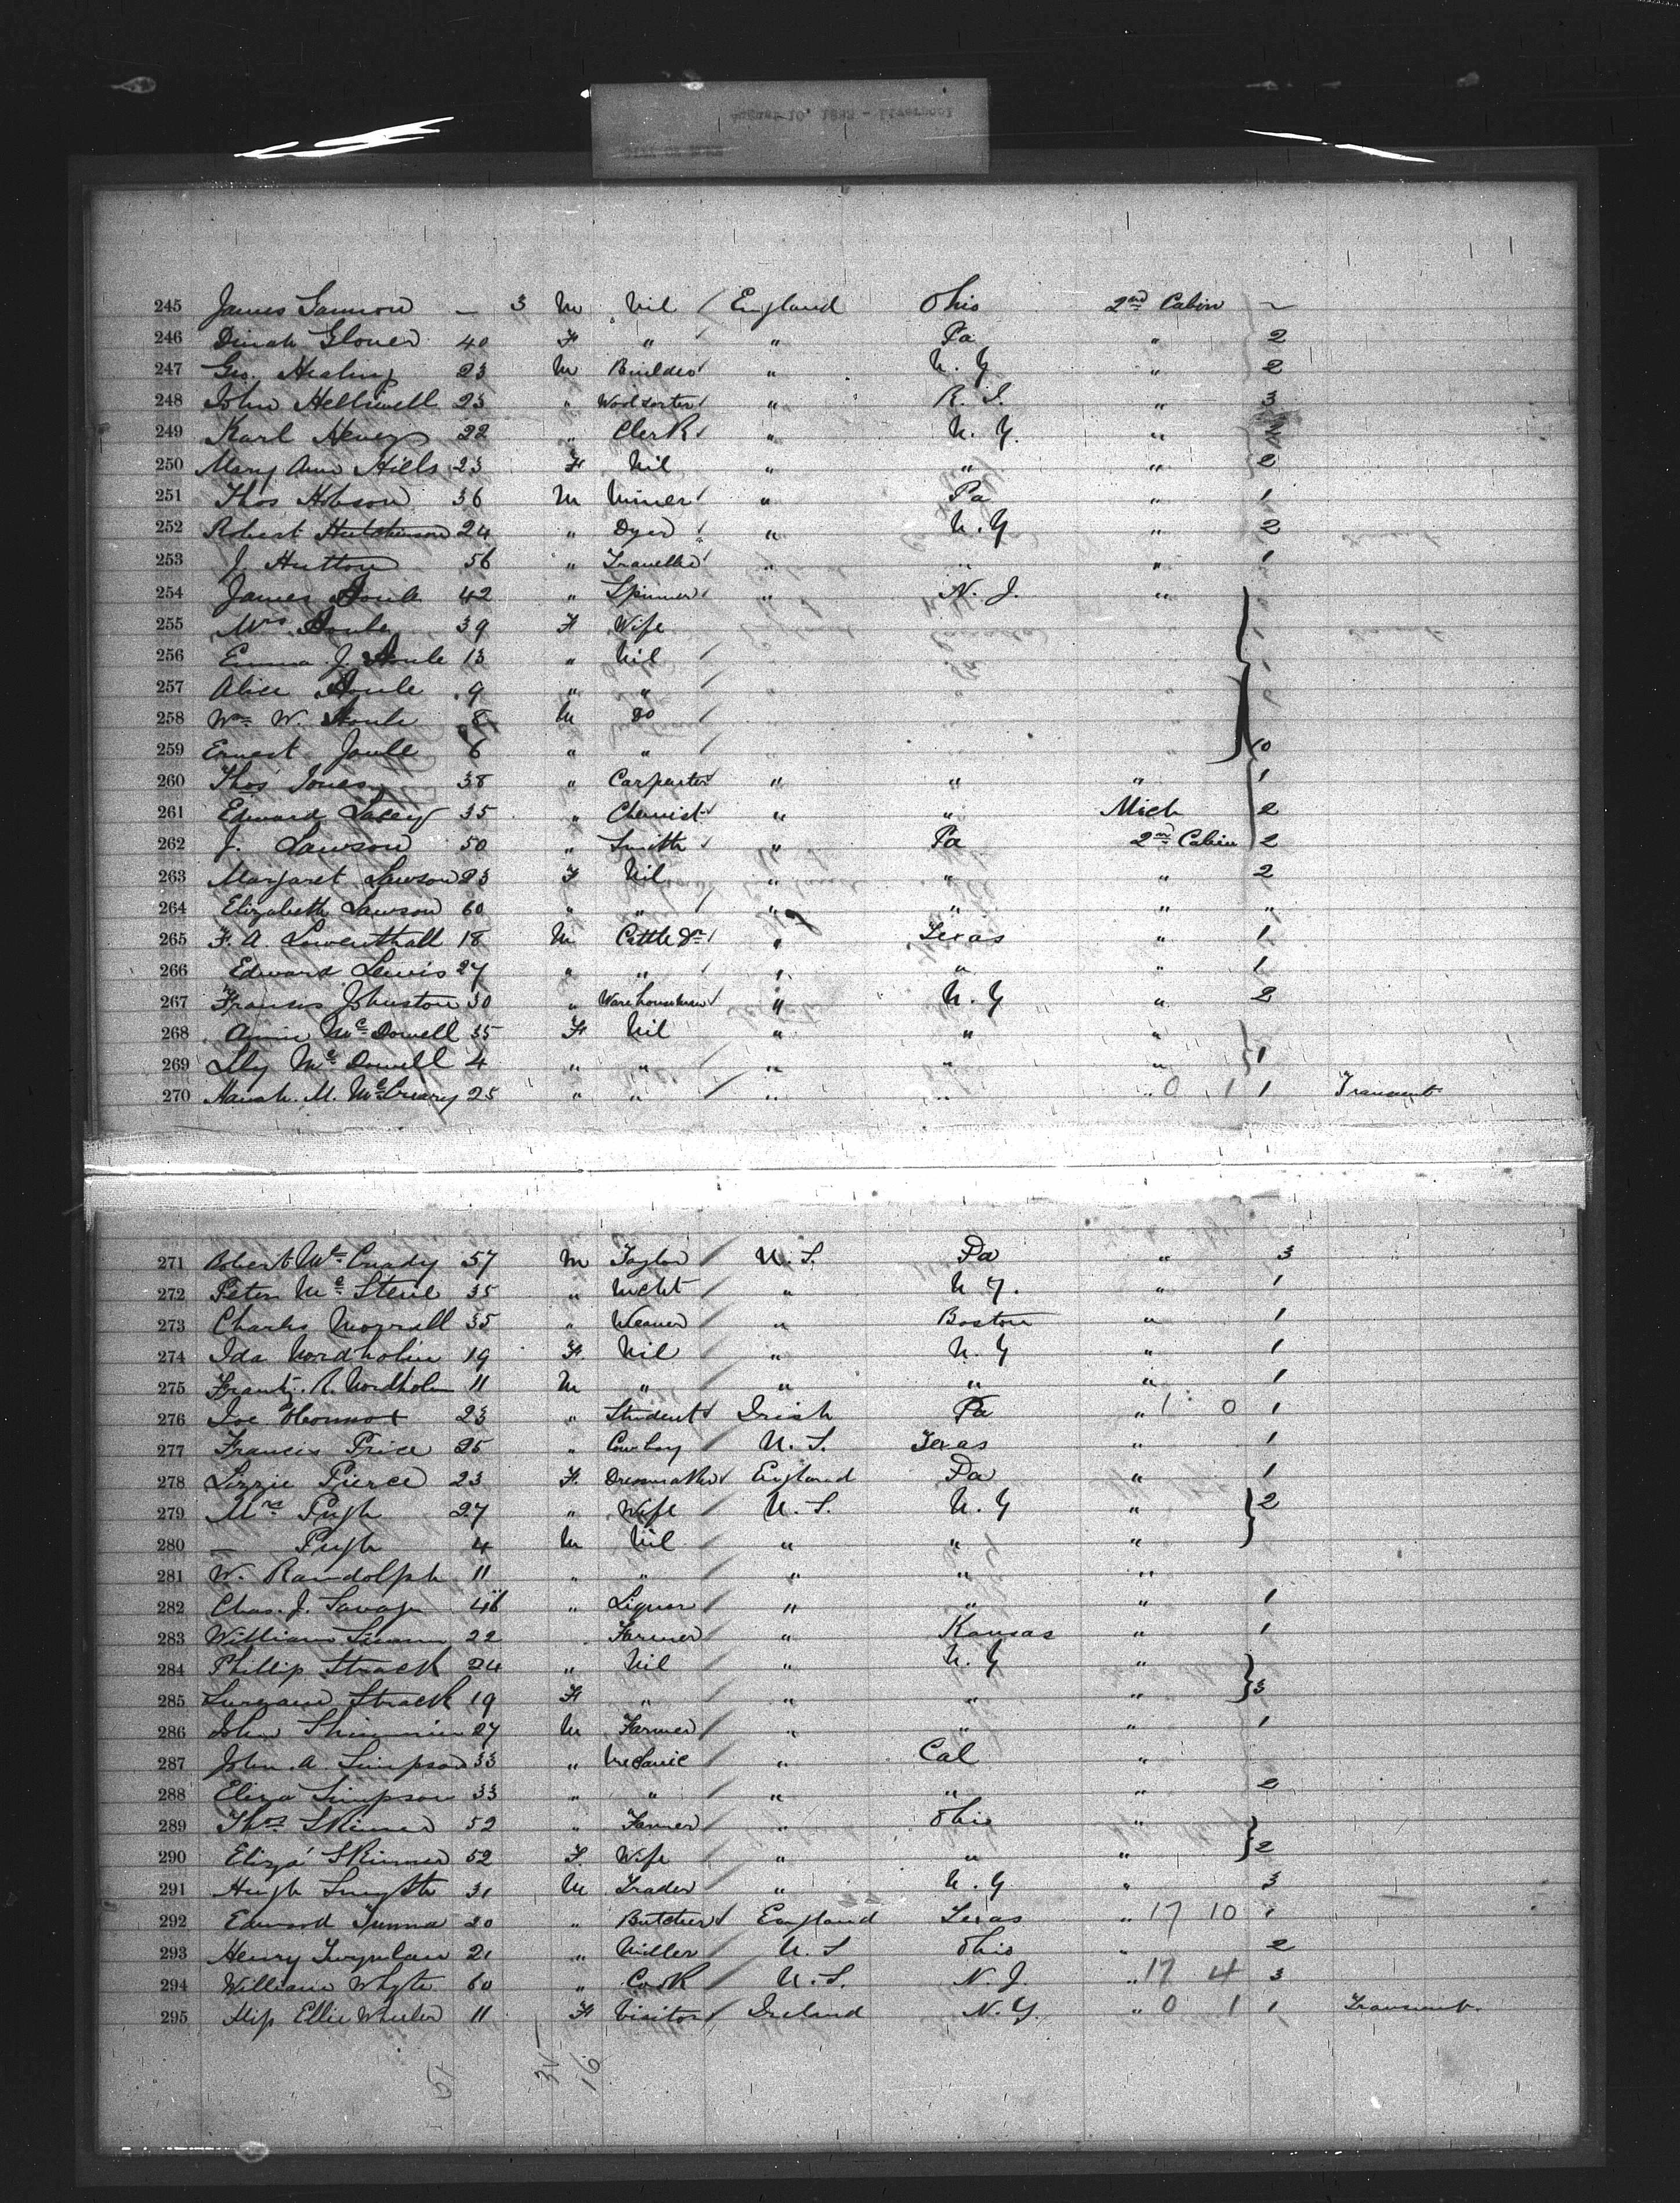 245 James Gannon – 3 M Nil England Ohio 2nd Cabin ~
246 Dinah Glover 40 F " " Pa " 2
247 Geo. Healing 23 M Builder " N.Y " 2
248 John Helliwell 23 " Woolsorter " R.I. " 3
249 Karl 22 " Clerk " N.Y. "
250 Mary Ann Hills 23 F Nil " " " 2
251 Thos Hobson 36 M Miner " Pa " 1
252 Robert Hutchinson 24 " Dyer " N.Y " 2
253 J. Hutton 56 " Traveller " " " 1
254 James Joule 42 " Spinner " N.J. "
255 Mrs. Joule 39 F Wife
256 Emma J. Joule 13 " Nil
257 Alice Joule 9 " "
258 Wm W. Joule 8 M do
259 Ernest Joule 6 " " 10
260 Thos Jones 38 " Carpenter " " " 1
261 Edward Lacey 35 " Chemist " " Mich 2
262 J. Lawson 50 " Smith " Pa 2nd Cabin 2
263 Margaret Lawson 23 F Nil " " " 2
264 Elizabeth Lawson 60 " " " " " "
265 F. A. Lowenthall 18 M Cattle Dr " Texas " 1
266 Edward Lewis 27 " " " " " 1
267 Francis Johnston 30 " Warehouseman " N.Y " 2
268 Annie McDowell 35 F Nil " " "
269 Lily McDowell 4 " " " " " 1
270 Hanah. M. McCreary 25 " " " " " 0 1 1 Transient
271 Robert McCready 57 M Taylor U.S. Pa " 3
272 Peter Mc 35 " Mcht " N.Y. " 1
273 Charles Morrall 35 " Weaver " Boston " 1
274 Ida Nordholm 19 F. Nil " N.Y " 1
275 Frantz. R. Nordholm 11 M " " " " 1
276 Joe 23 " Student Irish Pa " 1 0 1
277 Francis Price 25 " Cowboy U.S. Texas " 1
278 Lizzie Pierce 23 F. Dressmaker England Pa " 1
279 Mrs Pugh 27 " Wife U.S. N.Y " 2
280 — Pugh 4 M Nil " " "
281 W. Randolph 11 " " " " "
282 Chas. J. Savage " Liquor " " " 1
283 William 22 Farmer " Kansas " 1
284 Phillip Strack 24 " Nil " N.Y "
285 Strack 19 F " " " " 3
286 John Shimmin 27 M Farmer " " " 1
287 John. A. Simpson 33 " Mechanic " Cal "
288 Eliza Simpson 33 " " " " " 2
289 Thos Skinner 52 " Farmer " Ohio "
290 Eliza Skinner 52 F. Wife " " " 2
291 Hugh Smyth 31 M Trader " N.Y " 3
292 Edward 20 " Butcher England Texas " 17 10 1
293 Henry 21 " Miller U.S Ohio " 2
294 William Whyte 60 " Cook U.S. N.J. " 17 4 3
295 Ellie Wheeler 11 F Visitor Ireland N.Y. " 0 1 1 Transient